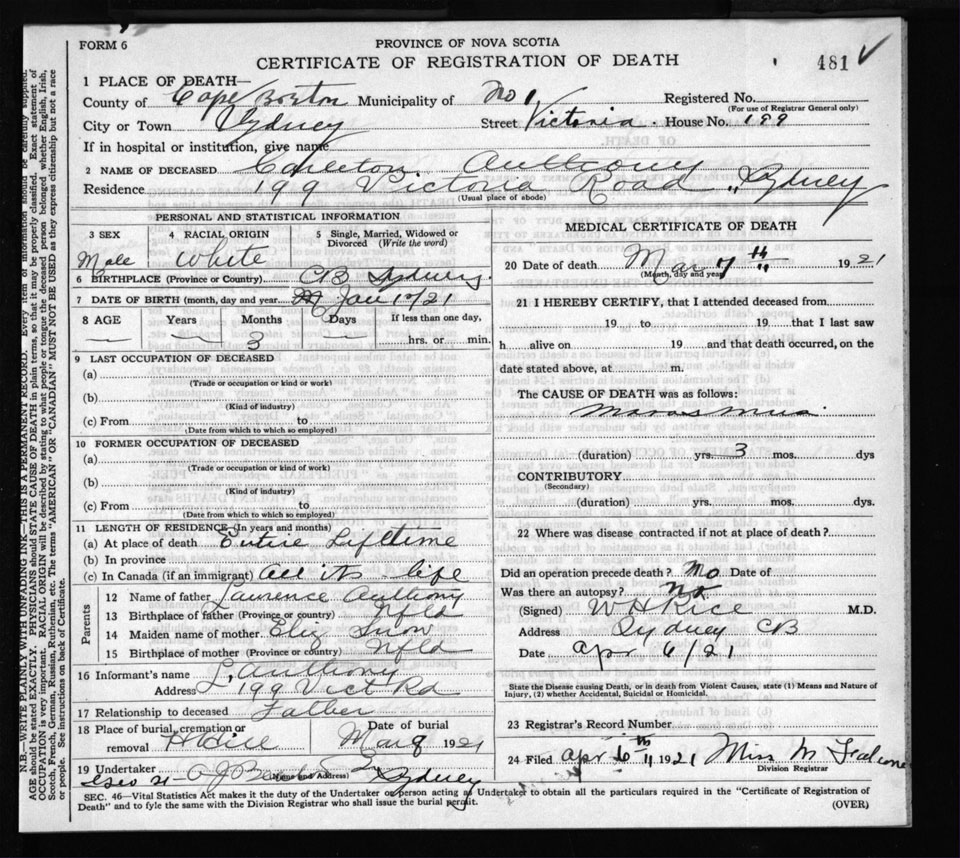 FORM 6
PROVINCE OF NOVA SCOTIA
CERTIFICATE OF REGISTRATION OF DEATH
481
1 PLACE OF DEATH—
County of Cape Breton Municipality of No 1 Registered No.
(For use of Registrar General only)
City or Town Sydney Street Victoria House No. 199
If in hospital or institution, give name
2 NAME OF DECEASED Carleton Anthony
Residence 199 Victoria Road, Sydney
(Usual place of abode)
PERSONAL AND STATISTICAL INFORMATION
3 SEX 4 RACIAL ORIGIN 5 Single, Married, Widowed or Divorced (Write the word)
Male White
6 BIRTHPLACE (Province or Country) CB Sydney
7 DATE OF BIRTH (month, day and year) Jan 1st/21
8 AGE Years Months Days If less than one day,
— — 3 — hrs. or min.
9 LAST OCCUPATION OF DECEASED
(a)
(Trade or occupation or kind or work)
(b)
(Kind of industry)
(c) From to
(Date from which to which so employed)
10 FORMER OCCUPATION OF DECEASED
(a)
(Trade or occupation or kind of work)
(b)
(Kind of industry)
(c) From to
(Date from which to which so employed)
11 LENGTH OF RESIDENCE (In years and months)
(a) At place of death Entire Lifetime
(b) In province
(c) In Canada (if an immigrant) All its life
Parents
12 Name of father Laurence Anthony
13 Birthplace of father (Province or country) Nfld
14 Maiden name of mother Eliz Snow
15 Birthplace of mother (Province or country) Nfld
16 Informant's name L. Anthony
Address 199 Vict Rd
17 Relationship to deceased Father
18 Place of burial, cremation or removal Date of burial
Mar 9 1921
19 Undertaker
(Name and Address) Sydney
MEDICAL CERTIFICATE OF DEATH
20 Date of death Mar 7th 1921
(Month, day and year)
21 I HEREBY CERTIFY, that I attended deceased from
19 to 19 that I last saw
h alive on 19 and that death occurred, on the
date stated above, at m.
The CAUSE OF DEATH was as follows:
Marasmus
(duration) yrs. 3 mos. dys
CONTRIBUTORY
(Secondary)
(duration) yrs. mos. dys.
22 Where was disease contracted if not at place of death?
Did an operation precede death? No Date of
Was there an autopsy? No
(Signed) W H Rice M.D.
Address Sydney CB
Date Apr 6/21
State the Disease causing Death, or in death from Violent Causes, state (1) Means and Nature of
Injury, (2) whether Accidental, Suicidal or Homicidal.
23 Registrar's Record Number
24 Filed Apr 6th 1921 Miss M
Division Registrar
SEC. 46—Vital Statistics Act makes it the duty of the Undertaker or person acting as Undertaker to obtain all the particulars required in the "Certificate of Registration of
Death" and to fyle the same with the Division Registrar who shall issue the burial permit. (OVER)
N.B.—WRITE PLAINLY WITH UNFADING INK—THIS IS A PERMANENT RECORD. Every item of information should be carefully supplied.
AGE should be stated EXACTLY. PHYSICIANS should STATE CAUSE OF DEATH in plain terms, so that it may be properly classified. Exact statement of
OCCUPATION is very important. RACIAL ORIGIN will be described by stating to what people or tongue the deceased person belonged whether English, Irish,
Scotch, French, German, Russian, Ruthenian, etc. The terms "AMERICAN" OR "CANADIAN" MUST NOT BE USED as they express citizenship but not a race
or people. See instructions on back of Certificate.